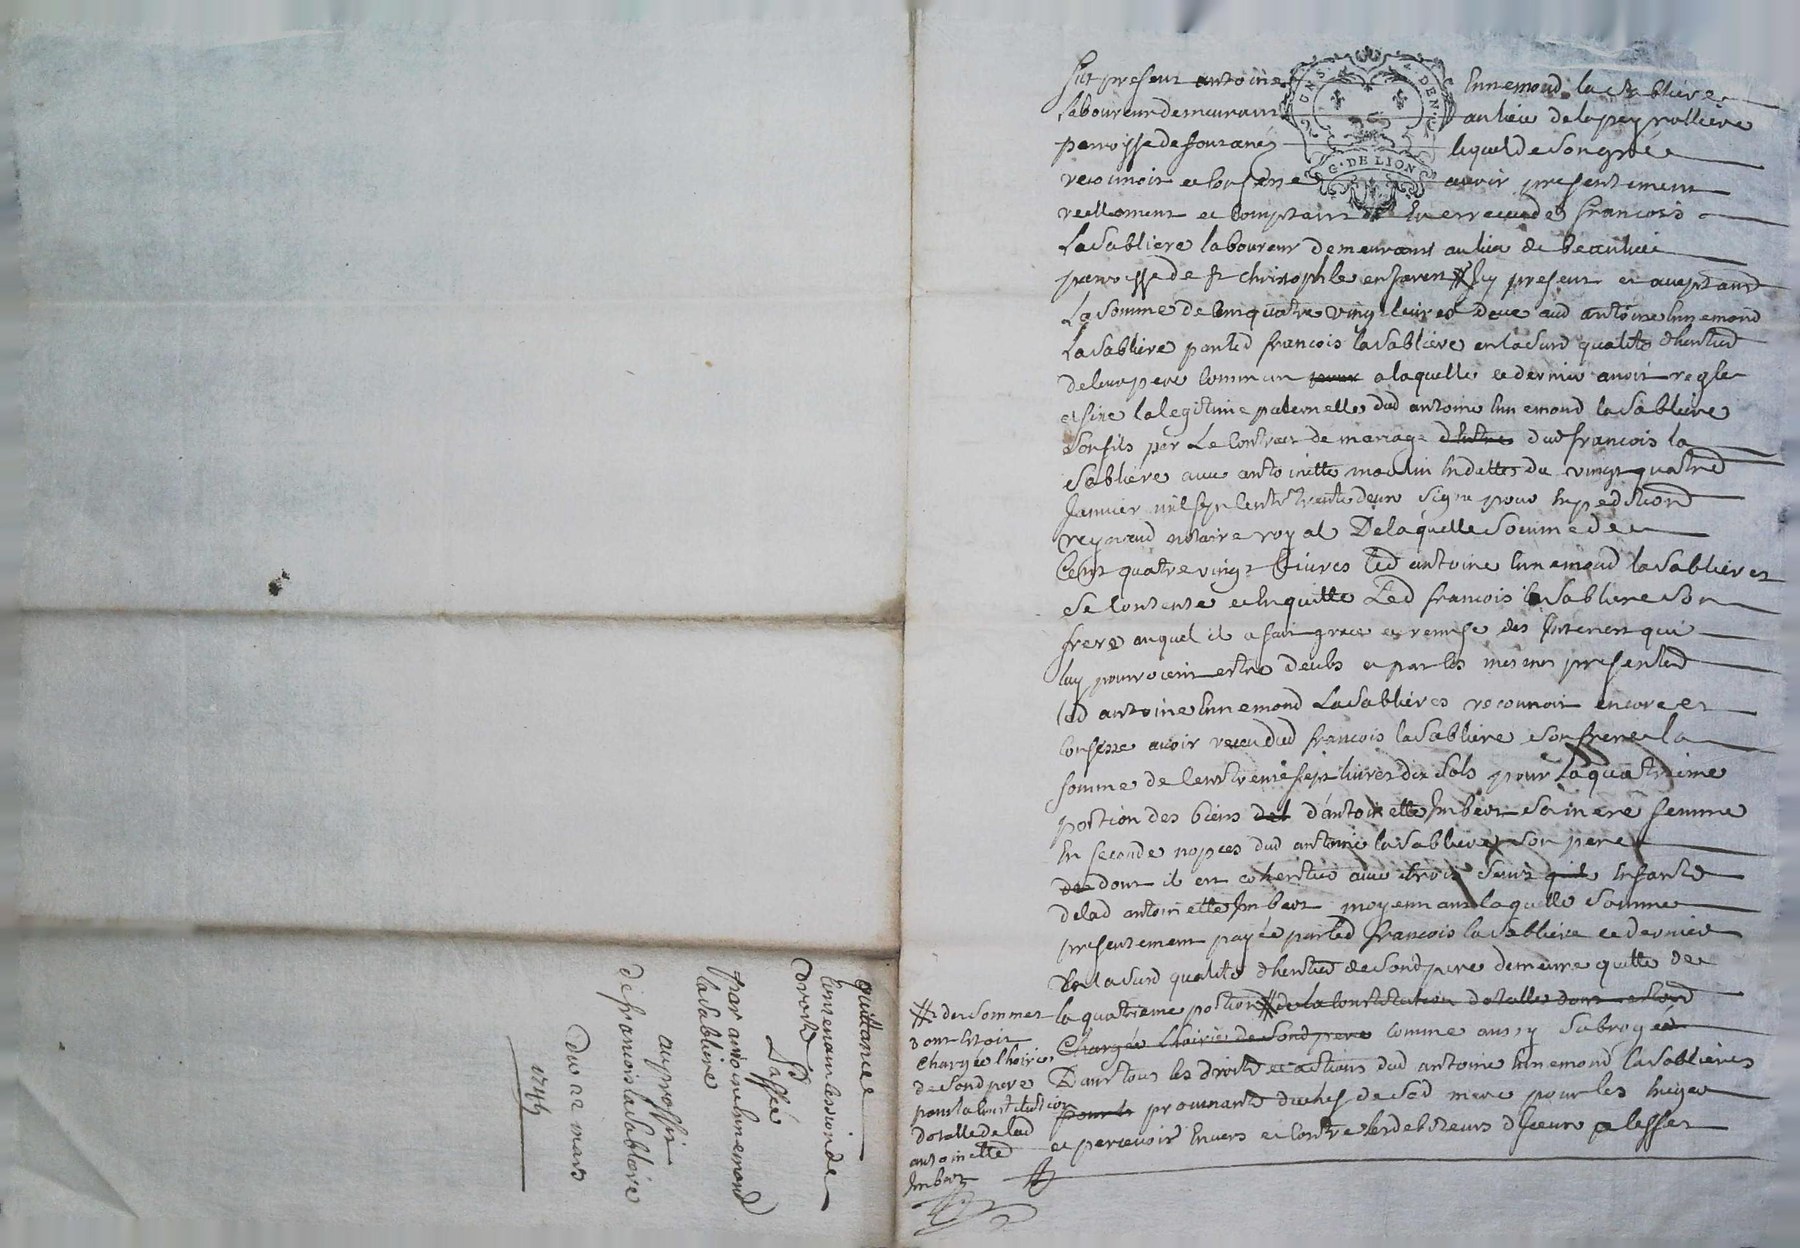 fut present antoine Ennemond la Sabliere
laboureur demeurant au lieu de la peyrolliere
paroisse de fontanes lequel de son gré
reconnoit et confesse avoir presentement
reellement et comptant eu et receu de francois
UNS DENI
G. DE LION
La Sabliere laboureur demeurant au lieu de beaulieu
paroisse de st christophle en Jarest icy present et acceptant
La somme de cent quatre vingt livres deue aud antoine Ennemond
La Sabliere par led francois la Sabliere en la susd qualité d'heritier
de leur pere commun a laquelle ce dernier avoit regle
et fixe la legitime paternelle dud antoine Ennemond la Sabliere
son fils par Le Contrat de mariage dud francois la
Sabliere avec antoinette moulin en datte du vingt quatre
Janvier mil sept cent trente deux signé pour expedition
reynaud notaire royal De laquelle somme de
Cent quatre vingt livres led antoine Ennemond la Sabliere
se contente et en quitte Led francois la Sabliere son
frere auquel il a fait grace et remise des interest qui
luy pourroient estre deubs et par les mesmes presentes
led antoine Ennemond La Sabliere reconnoit encore et
confesse avoir receu dud francois la Sabliere son frere la
somme de cent trente sept livres dix sols pour la quatrieme
portion des biens d'antoinette Imbert sa mere femme
En seconde nopces dud antoine la Sabliere son pere
dont il est coheritier avec trois Enfants
de lad antoinette Imbert moyennant laquelle somme
presentement payée par led francois la Sabliere ce dernier
En la susd qualité d'heritier de son d pere demeure quitte de
la quatrieme portion # de la Constitution dotalle dont
Chargée l'hoirie de son d pere comme aussy subrogé
Dans tous les droits et actions dud antoine Ennemond la Sabliere
pour le provenants du chef de sad mere pour les exiger
et percevoir Envers et contre les debiteurs d'iceux a l'effet
# des sommes
dont estoit
Chargée l'hoirie
de son d pere
pour la Constitution
dotalle de lad
antoinette
Imbert
quittance
Contenant cession de
droits
passée
par antoine Ennemond
la Sabliere
au proffit
de francois la Sabliere
Du 22 mars
1745